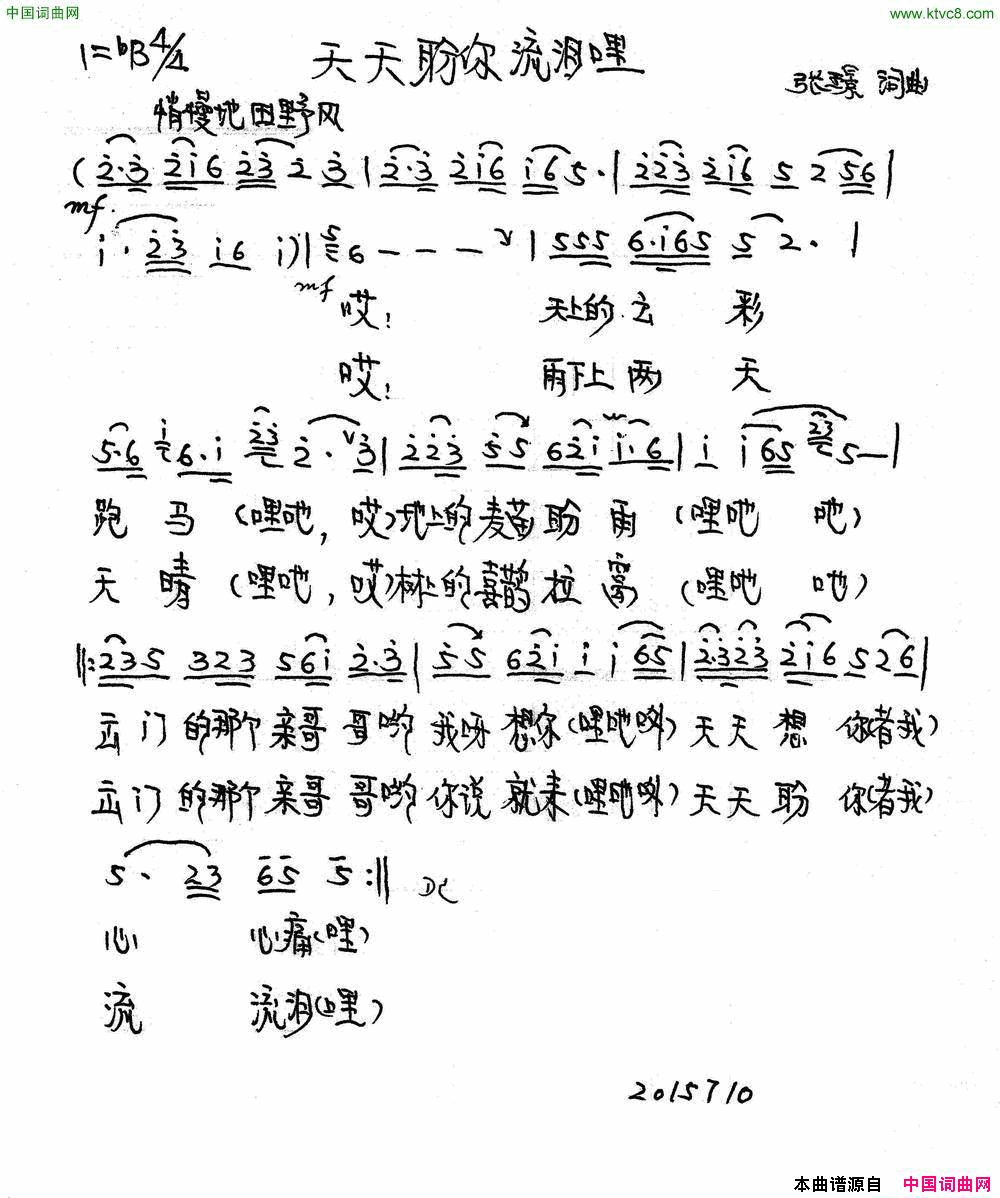 中国词曲网 www.ktvc8.com
1=bB4/4 天天盼你流泪哩
张璟 词曲
稍慢地田野风
(2·3 2i6 23 2 3|2·3 2i6 i65·|223 2i6 5 2 56|
mf.
i·23 i6 i)|56---|555 6·i65 5 2·|
mf 哎! 天上的云 彩
哎! 雨下上两 天
5·6 i6·i 23 2·3|223 55 62i i·6|i i65 23 5—|
跑 马(哩吔,哎)地上的麦苗盼 雨(哩吔 吔)
天 晴(哩吔,哎)林上的喜鹊拉 窝(哩吔 吔)
||:235 323 56i 2·3|55 62i i i65|2·323 2i6 526|
出门的那个亲哥 哥哟 我呀 想你(哩吔哟)天天 想 你(者我)
出门的那个亲哥 哥哟 你说 就来(哩吔哟)天天 盼 你(者我)
5·23 65 5:|| DC
心 心痛(哩)
流 流泪(哩)
2015710
本曲谱源自 中国词曲网